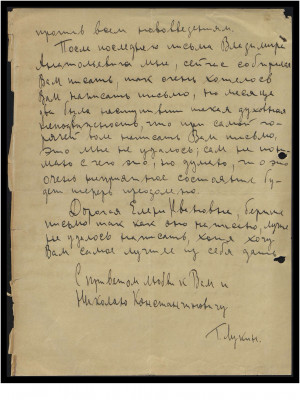 против всем нововведениям.
После последнего письма Владимира
Анатольевича мне, сейчас собирался
Вам писать, так очень хотелось
Вам написать письмо, но месяца
два была наступившая такая духовная
что при самой го-
рячей написать Вам письмо,
это мне не удалось; сам не пони-
маю с чего это, но думаю, что это
очень неприятное состояние бу-
дет теперь
Дорогая Елена Ивановна, берите
письмо так как оно написано, лучше
не удалось написать, хотя хочу
Вам самое лучшее из себя дать
С приветом любви к Вам и
Николаю Константиновичу
Г. Лукин.